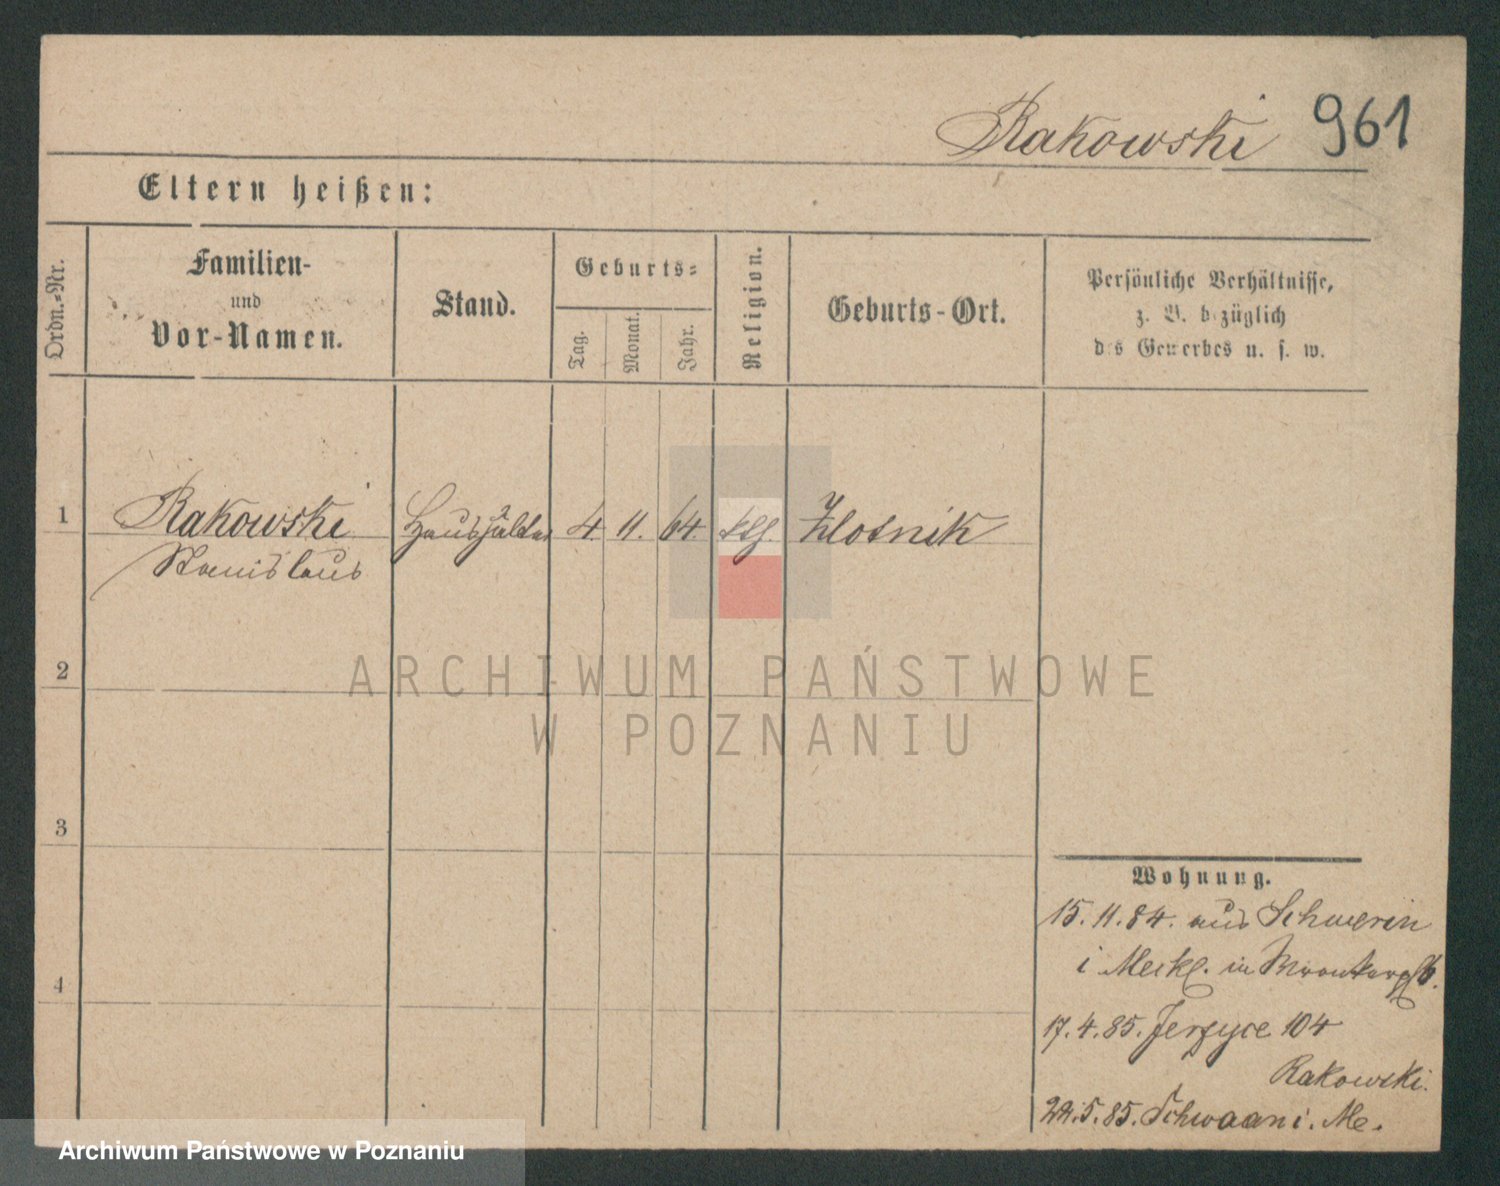 Rakowski 961
Eltern heißen:
Ordn.-Nr.
Familien-
und
Vor-Namen.
Stand.
Geburts-
Tag.
Monat.
Jahr.
Religion.
Geburts-Ort.
Persönliche Verhältnisse,
z. B. bezüglich
des Gewerbes u. s. w.
1 Rakowski Haushälter 4. 11. 64. kth. Zlotnik
Stanislaus
2
3
4
Wohnung.
15. 11. 84. aus Schwerin
i Meckl. in
17. 4. 85. Jerzyce 104
Rakowski.
22. 5. 85. Schwaan i. Me.
ARCHIWUM PAŃSTWOWE
W POZNANIU
Archiwum Państwowe w Poznaniu